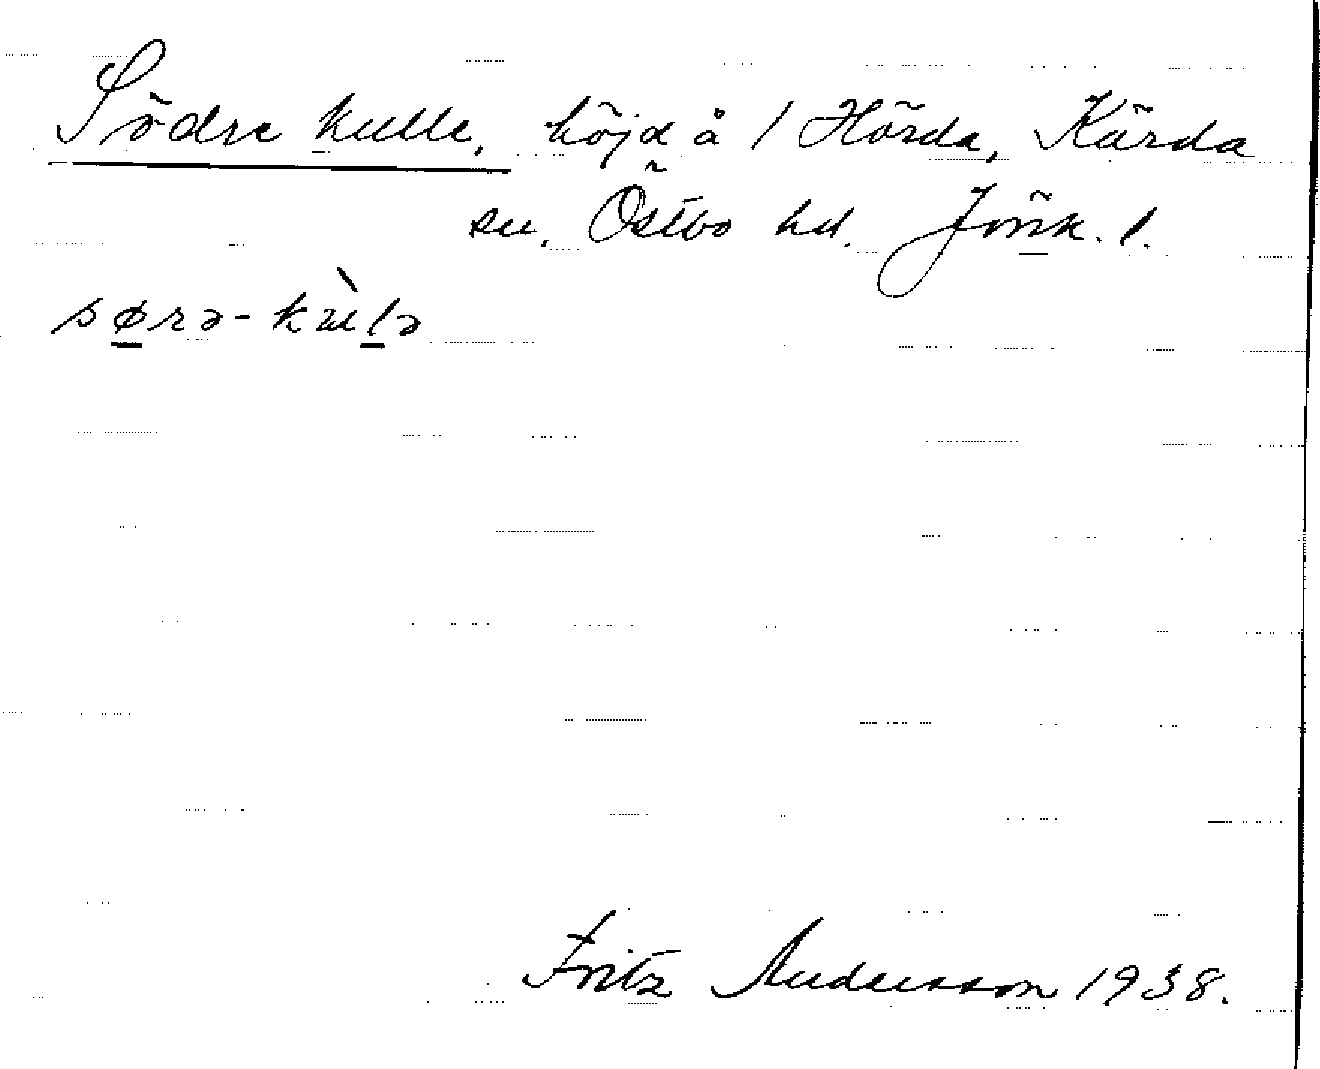 Södre kulle, höjd å / Hörda, Kärda
sn. Östbo hd. Jönk. l.
sørə-kùlə
Fritz Andersson 1938.